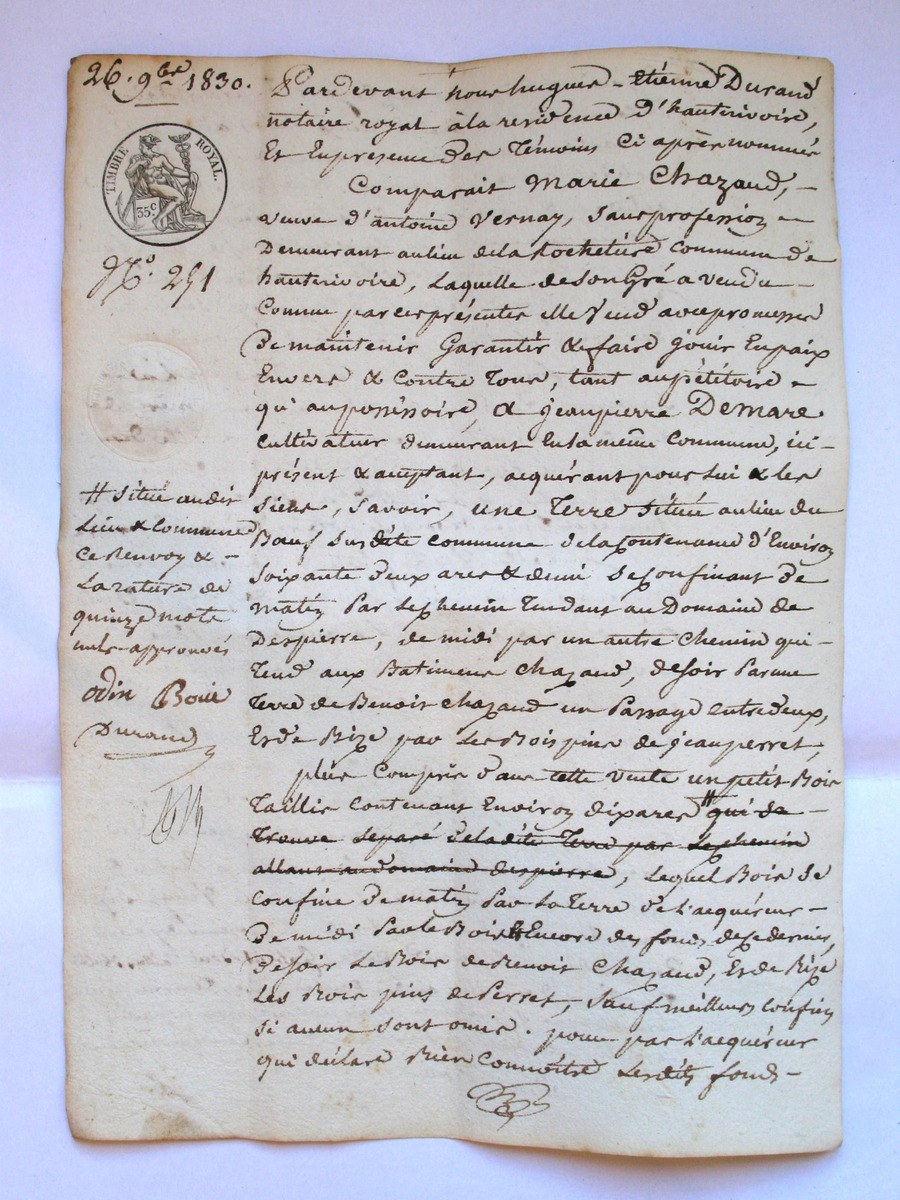 26. 9bre 1830.
TIMBRE ROYAL.
35c
No. 251
# situé audit
Lieu & Commune
ce Renvoy & -
La rature de
quinze mots
nuls approuvés
odin Boüe
Durand
Pardevant nous hugues - etiénne Durand
notaire royal à la residence d'hauterivoire,
Et En presence des Témoins Ci après nommés
Comparait Marie Chazaud, -
veuve d'antoine Vernay, sans profession -
Demeurant au lieu de la Rochetüre commune de
hauterivoire, Laquelle de son Gré a vendu -
Comme par ces présentes elle Vend avec promesses
De maintenir Garantir & faire Jouir En paix
Envers & Contre Tous, tant au pétitoire -
qu'au possessoire, A jean pierre Demare
Cultivateur demeurant En la même Commune, ici
présent & acceptant, acquérant pour Lui & les
Siens, Savoir, une Terre Située au lieu du
Bœuf Sus dite commune de la Contenance d'Environ
Soixante deux ares & demi Se Confinant de
matin Par Le Chemin Tendant au Domaine de
Despierre, de midi par un autre Chemin qui -
Tend aux Batimens Chazaud, de soir Par une
Terre de Benoit Chazaud un Passage entre deux,
Et de Bize par Les Bois pins de jean perret,
plus Compris dans cette vente un petit Bois
Taillis Contenant Environ dix ares # qui se -
Trouve Separé de la dite Terre par Le chemin
allant au domaine despierre, Lequel Bois Se
Confine De matin Par La Terre de L'acquéreur -
De midi Par le Bois & Encore des fonds de ce dernier,
De soir Le Bois de Benoit Chazaud, Et de Bize
Les Bois pins de Perret, Sauf meilleurs Confins
Si aucun sont omis. pour par L'acquéreur
qui déclare Bien Connoître Les dits fonds -